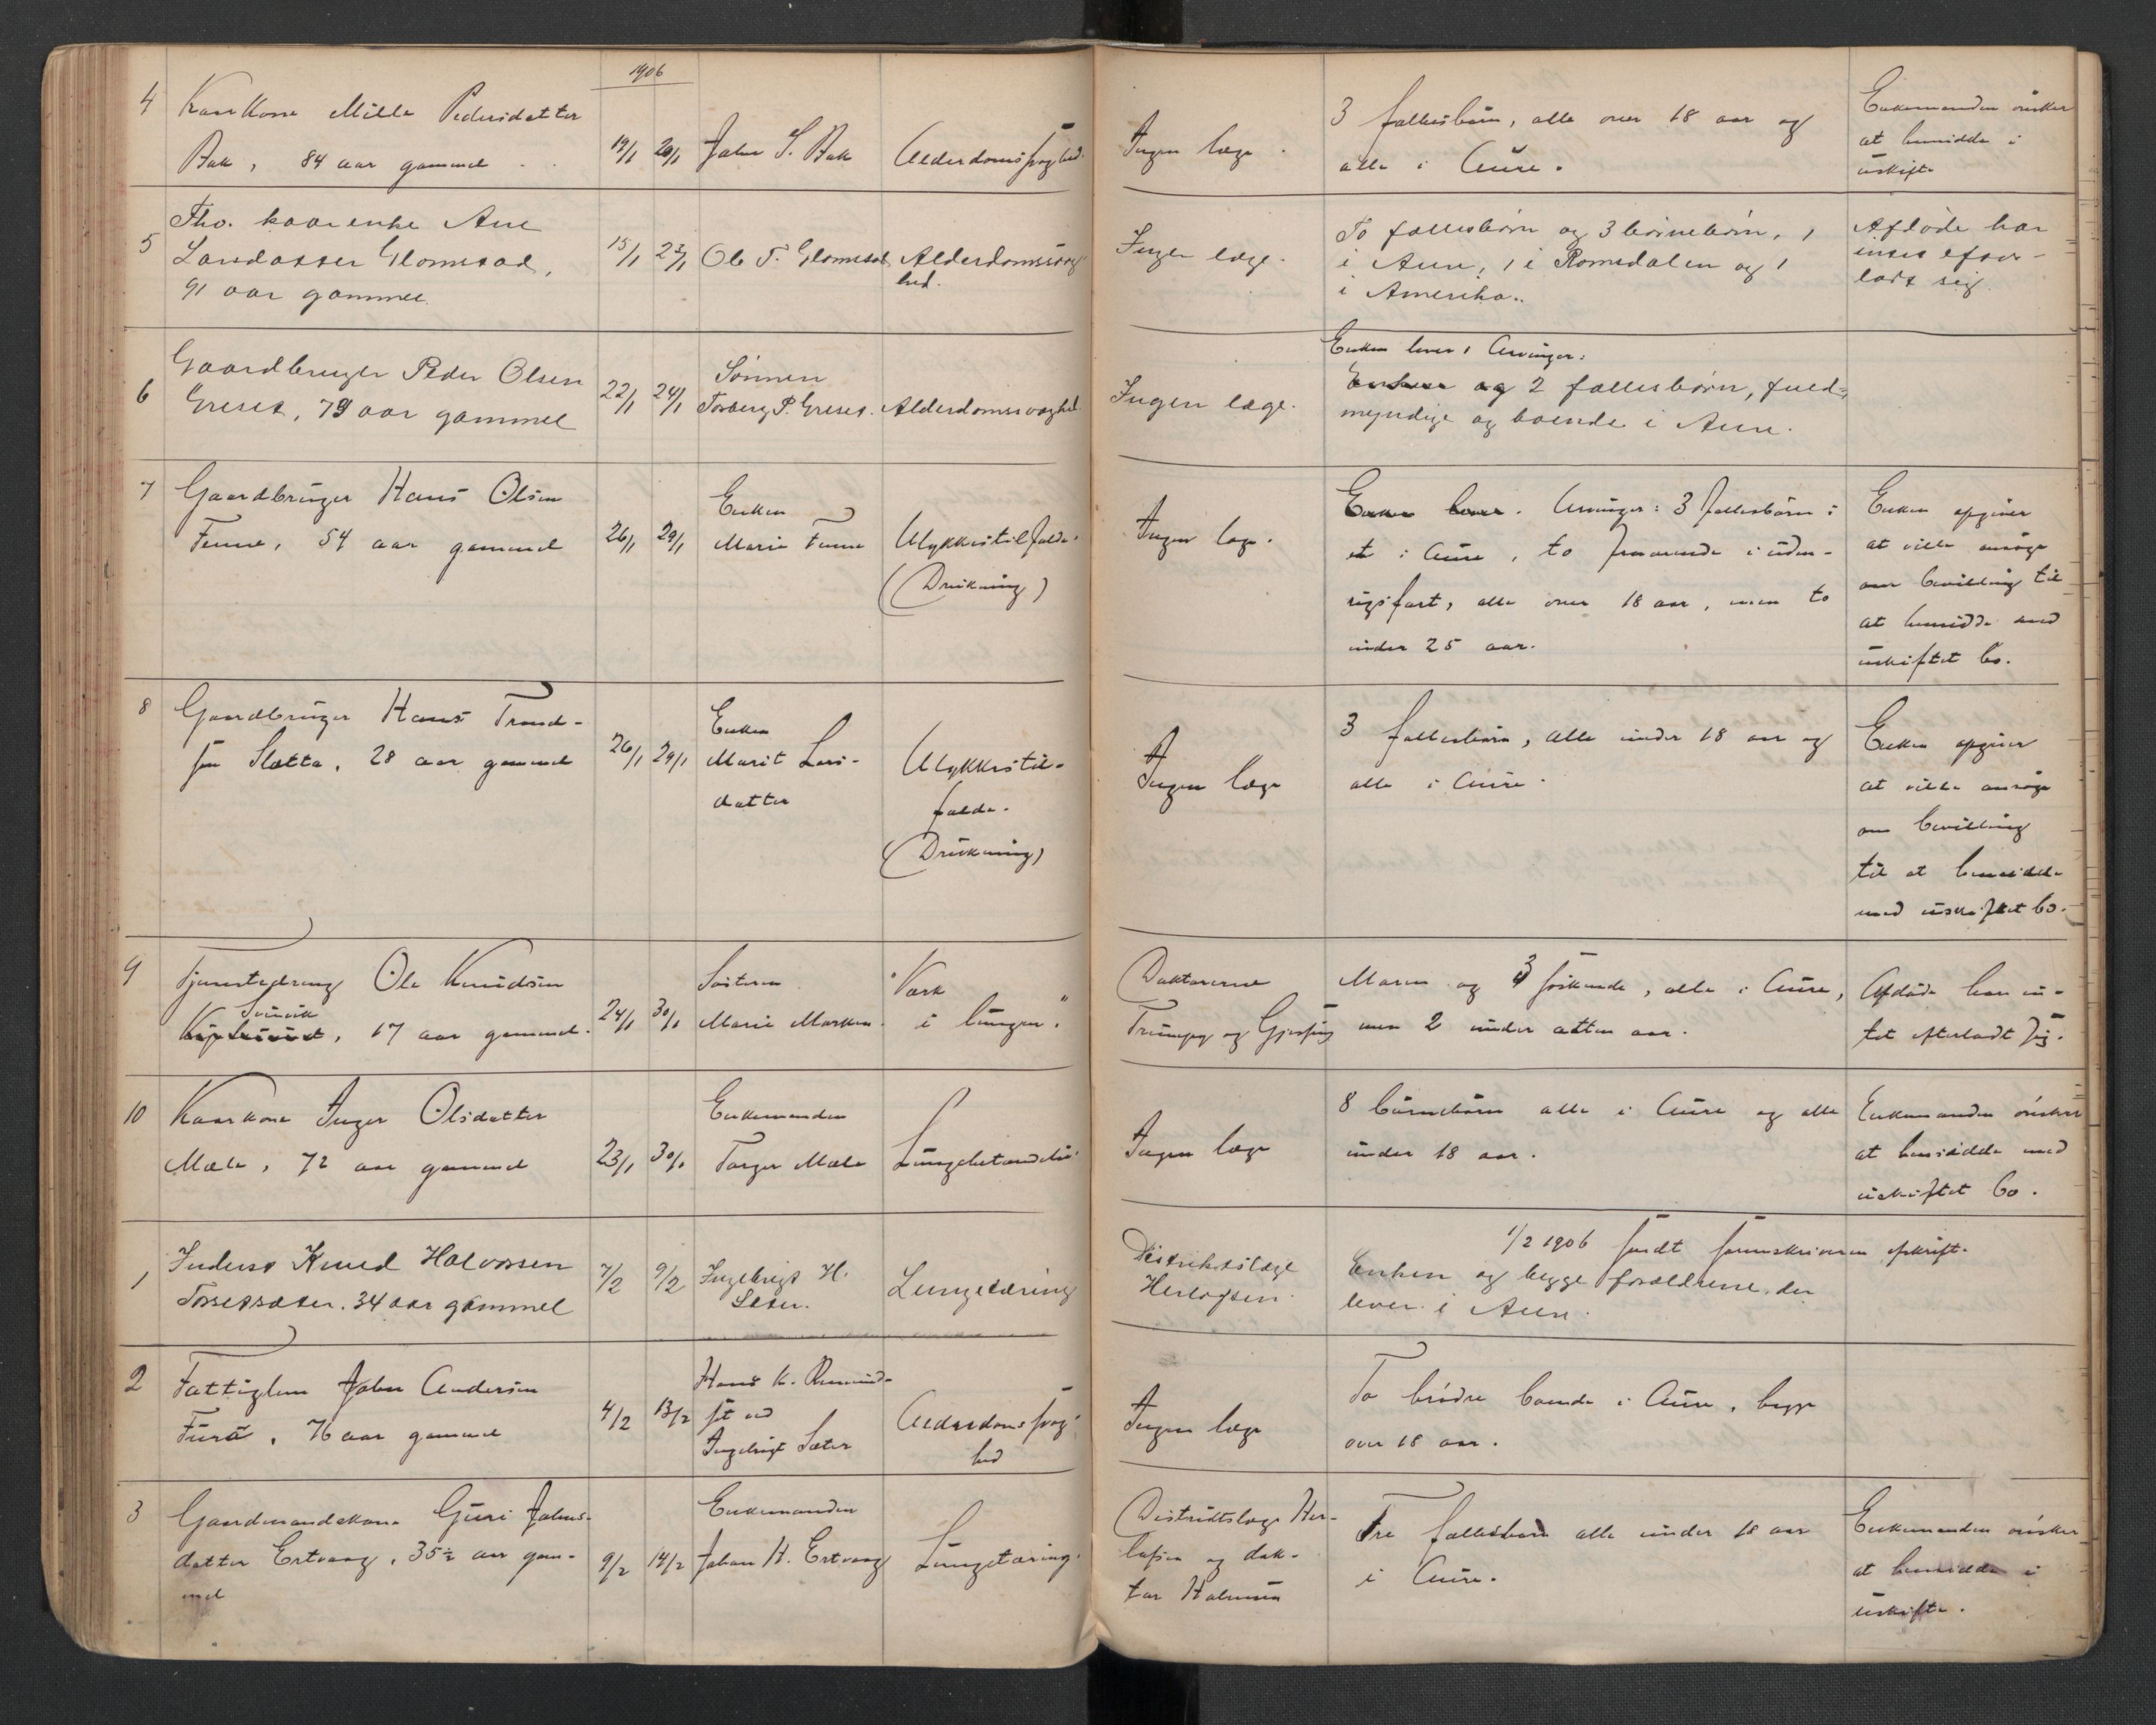 1906
4 Kaarkone Mille Pedersdatter
Bak, 84 aar gammel
19/1 20/1 John S. Bak Alderdomssvaghed.
Ingen læge.
3 fællesbørn, alle over 18 aar og
alle i Aure.
Enkemanden ønsker
at hensidde i
uskifte
5 Fho. kaarenke Ane
Larsdatter Glomstad,
91 aar gammel.
15/1 23/1 Ole T. Glomstad Alderdomssvag-
hed.
Ingen læge.
To fællesbørn og 3 børnebørn, 1
i Aure, 1 i Romsdalen og 1
i Amerika.
Afdøde har
intet efter-
ladt sig.
6 Gaardbruger Peder Olsen
Greset, 79 aar gammel
22/1 24/1 Sønnen
Torberg P. Greset. Alderdomssvaghed.
Ingen læge.
Enken lever, Arvinger:
Enken og 2 fællesbørn, fuld-
myndige og boende i Aure.
7 Gaardbruger Hans Olsen
Fenne, 54 aar gammel
26/1 29/1 Enken
Marie Fenne Ulykkestilfælde.
(Drukning)
Ingen læge.
Enken lever. Arvinger: 3 fællesbørn:
et i Aure, to fraværende i uden-
rigsfart, alle over 18 aar, men to
under 25 aar.
Enken opgiver
at ville ansøge
om bevilling til
at hensidde med
uskiftet bo.
8 Gaardbruger Hans Trond-
sen Slætta, 28 aar gammel
26/1 29/1 Enken
Marit Lars-
datter
Ulykkestil-
fælde.
(Drukning)
Ingen læge
3 fællesbørn, alle under 18 aar og
alle i Aure.
Enken opgiver
at ville ansøge
om bevilling
til at hensidde
med uskiftet bo.
9 Tjenestedreng Ole Knudsen
Svinvik
17 aar gammel.
24/1 30/1 Søsteren
Marie Marken. "Værk
i lungen."
Doktorerne
Trumpy og Gjessing
Moren og 3 søskende, alle i Aure,
men 2 under atten aar.
Afdøde har in-
tet efterladt sig.
10 Kaarkone Inger Olsdatter
Mæle, 72 aar gammel
23/1 30/1 Enkemanden
Torger Mæle Lungebetændelse.
Ingen læge
8 børnebørn alle i Aure og alle
under 18 aar.
Enkemanden ønsker
at hensidde med
uskiftet bo.
1/2 1906 sendt sorenskriveren afskrift.
1 Inderst Knud Halvorsen
Torsetsæter. 34 aar gammel
7/2 9/2 Ingebrigt H.
Sæter. Lungetæring
Distriktslæge
Herlofsen.
Enken og begge forældrene, der
lever i Aure.
2 Fattiglem John Andersen
Furø, 76 aar gammel
4/2 13/2 Hans K. Rimind-
set ved
Ingebrigt Sæter
Alderdomssvag-
hed
Ingen læge
To brødre boende i Aure, begge
over 18 aar.
3 Gaardmandskone Guri Johns-
datter Ertvaag, 35½ aar gam-
mel
9/2 14/2 Enkemanden
Johan H. Ertvaag Lungetæring.
Distriktslæge Her-
lofsen og dok-
tor Halvorsen
Tre fællesbørn alle under 18 aar
i Aure.
Enkemanden ønsker
at hensidde i
uskifte.